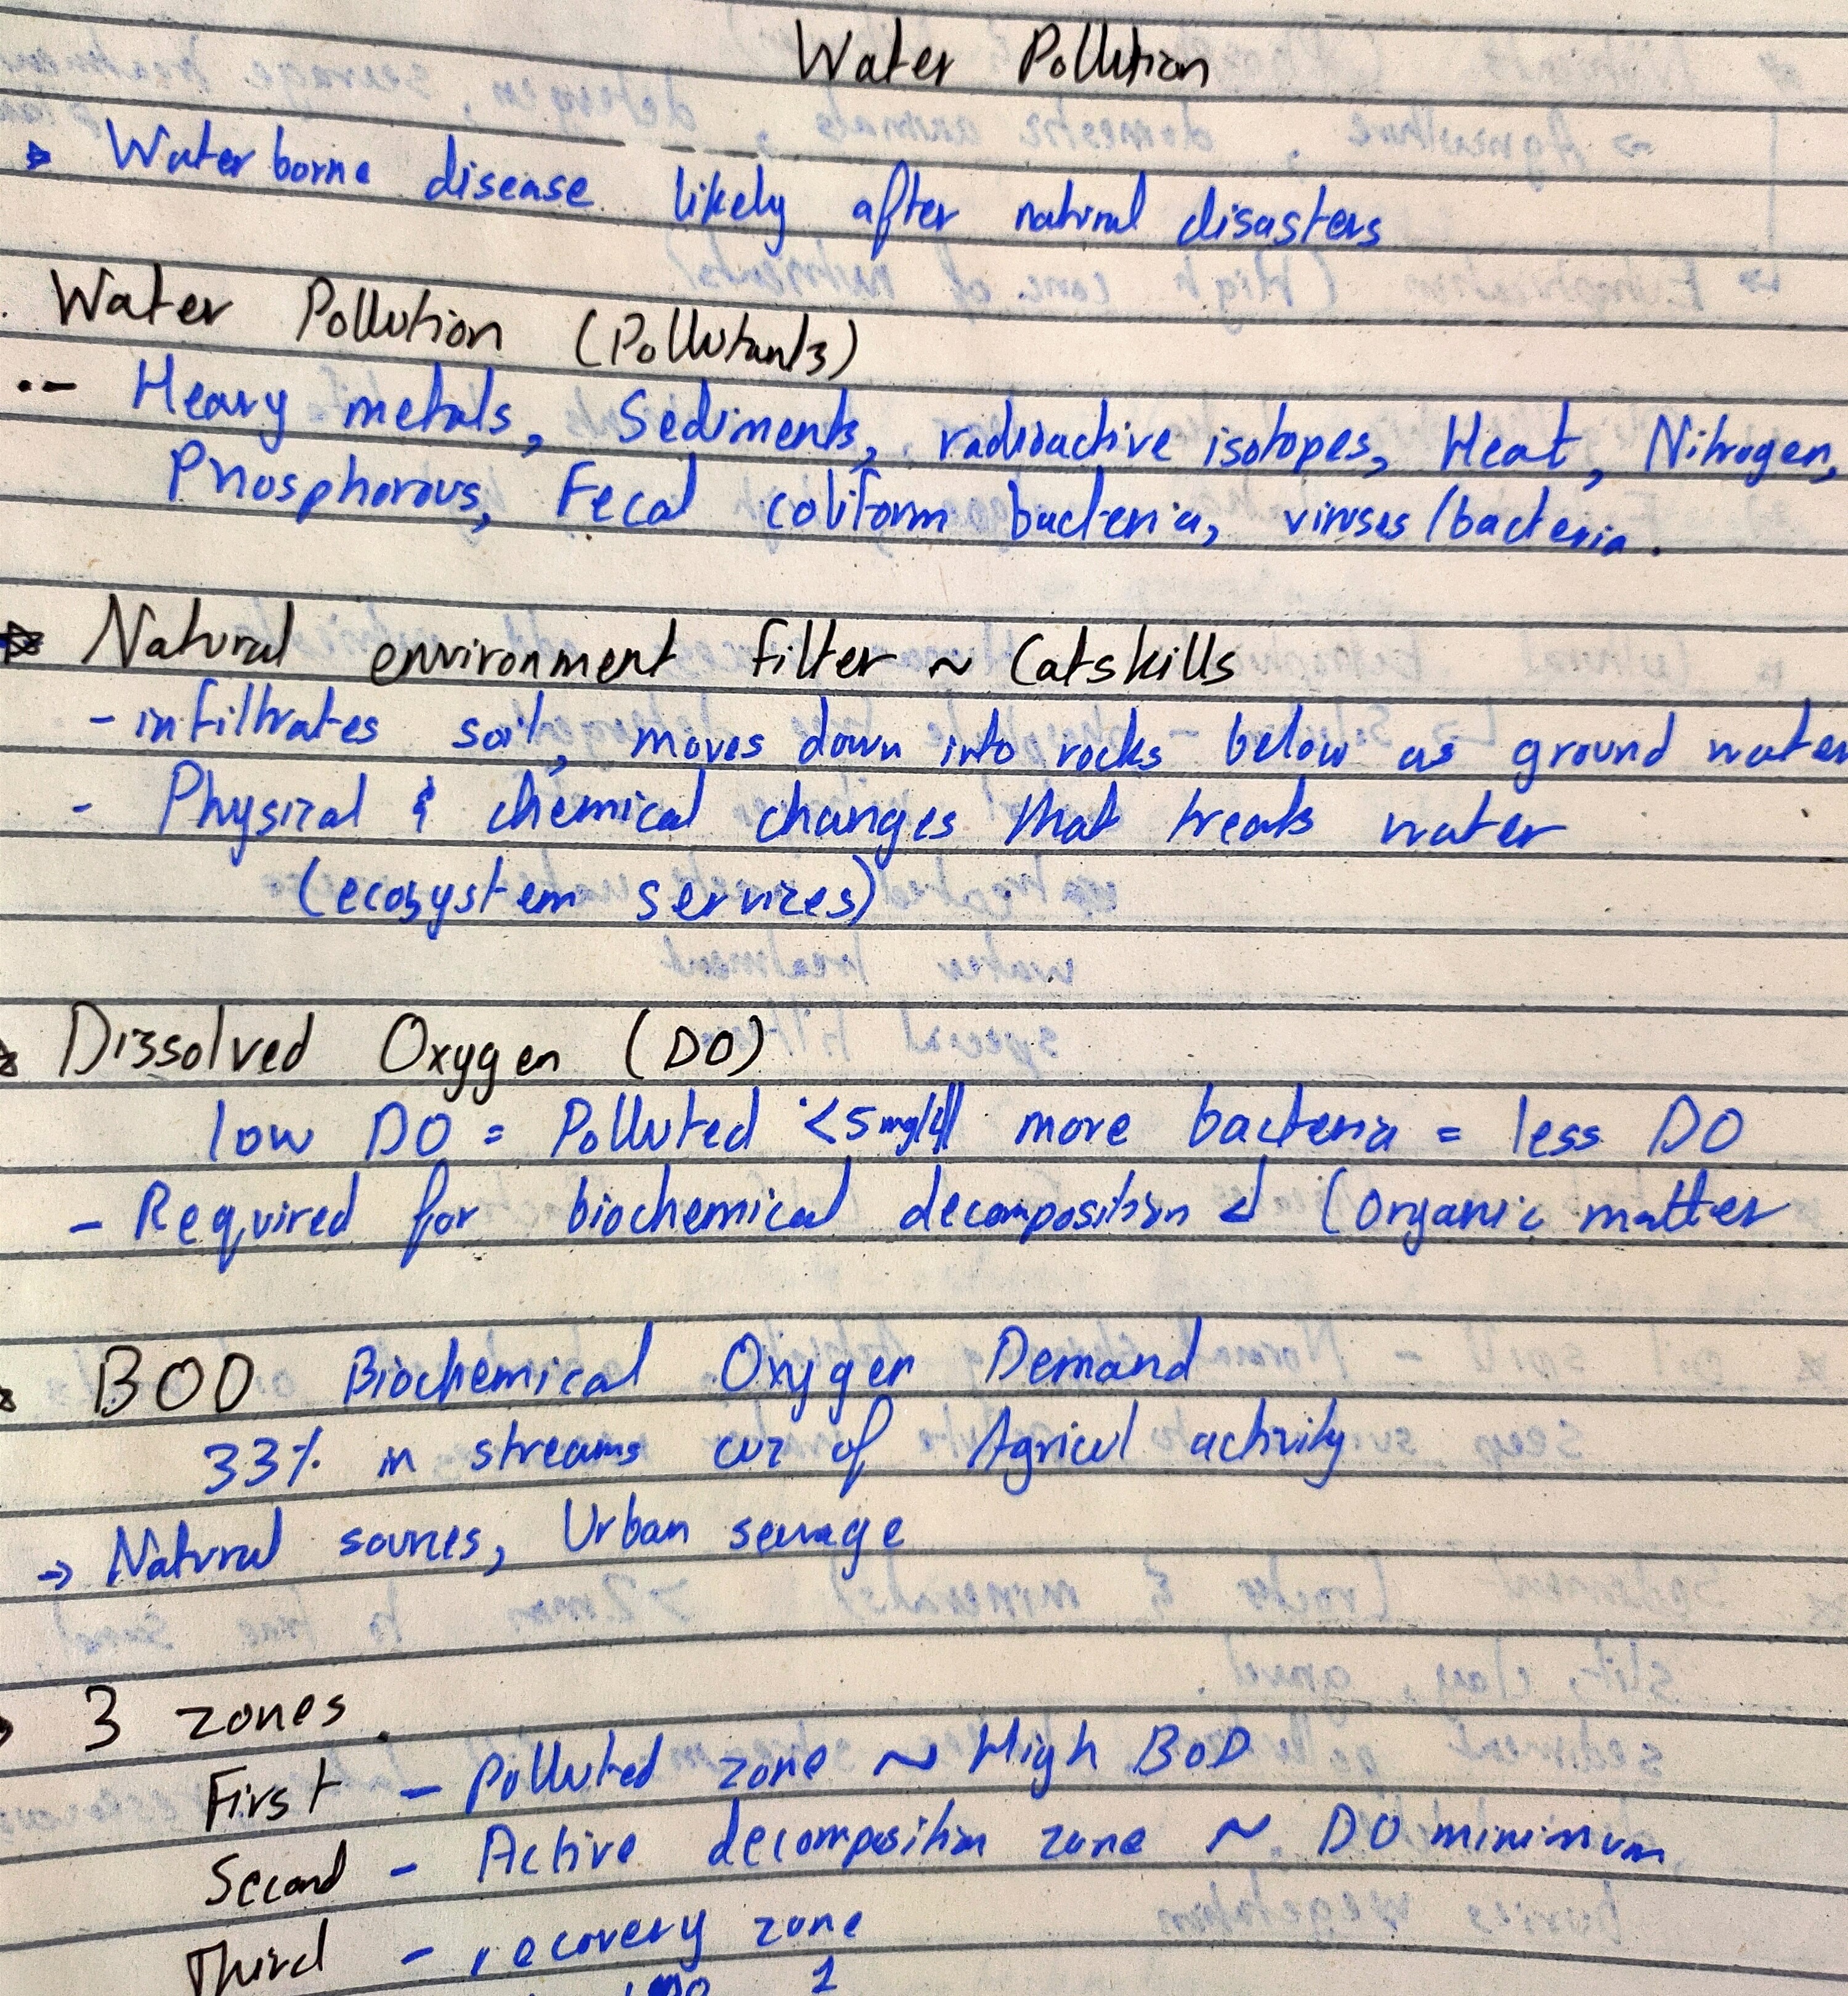 Water Pollution
Waterborne disease likely after natural disasters
Water Pollution (Pollutants)
- Heavy metals, Sediments, radioactive isotopes, Heat, Nitrogen,
Phosphorous, Fecal coliform bacteria, viruses/bacteria.
Natural environment filter ~ Catskills
- infiltrates soil, moves down into rocks below as ground water
- Physical & chemical changes that treats water
(ecosystem services)
Dissolved Oxygen (DO)
low DO = Polluted <5mg/l more bacteria = less DO
- Required for biochemical decomposition (Organic matter
BOD Biochemical Oxygen Demand
33% in streams cuz of Agricul activity
→ Natural sources, Urban sewage
3 zones.
First - Polluted zone ~ High BOD
Second - Active decomposition zone ~ DO minimum
Third - recovery zone